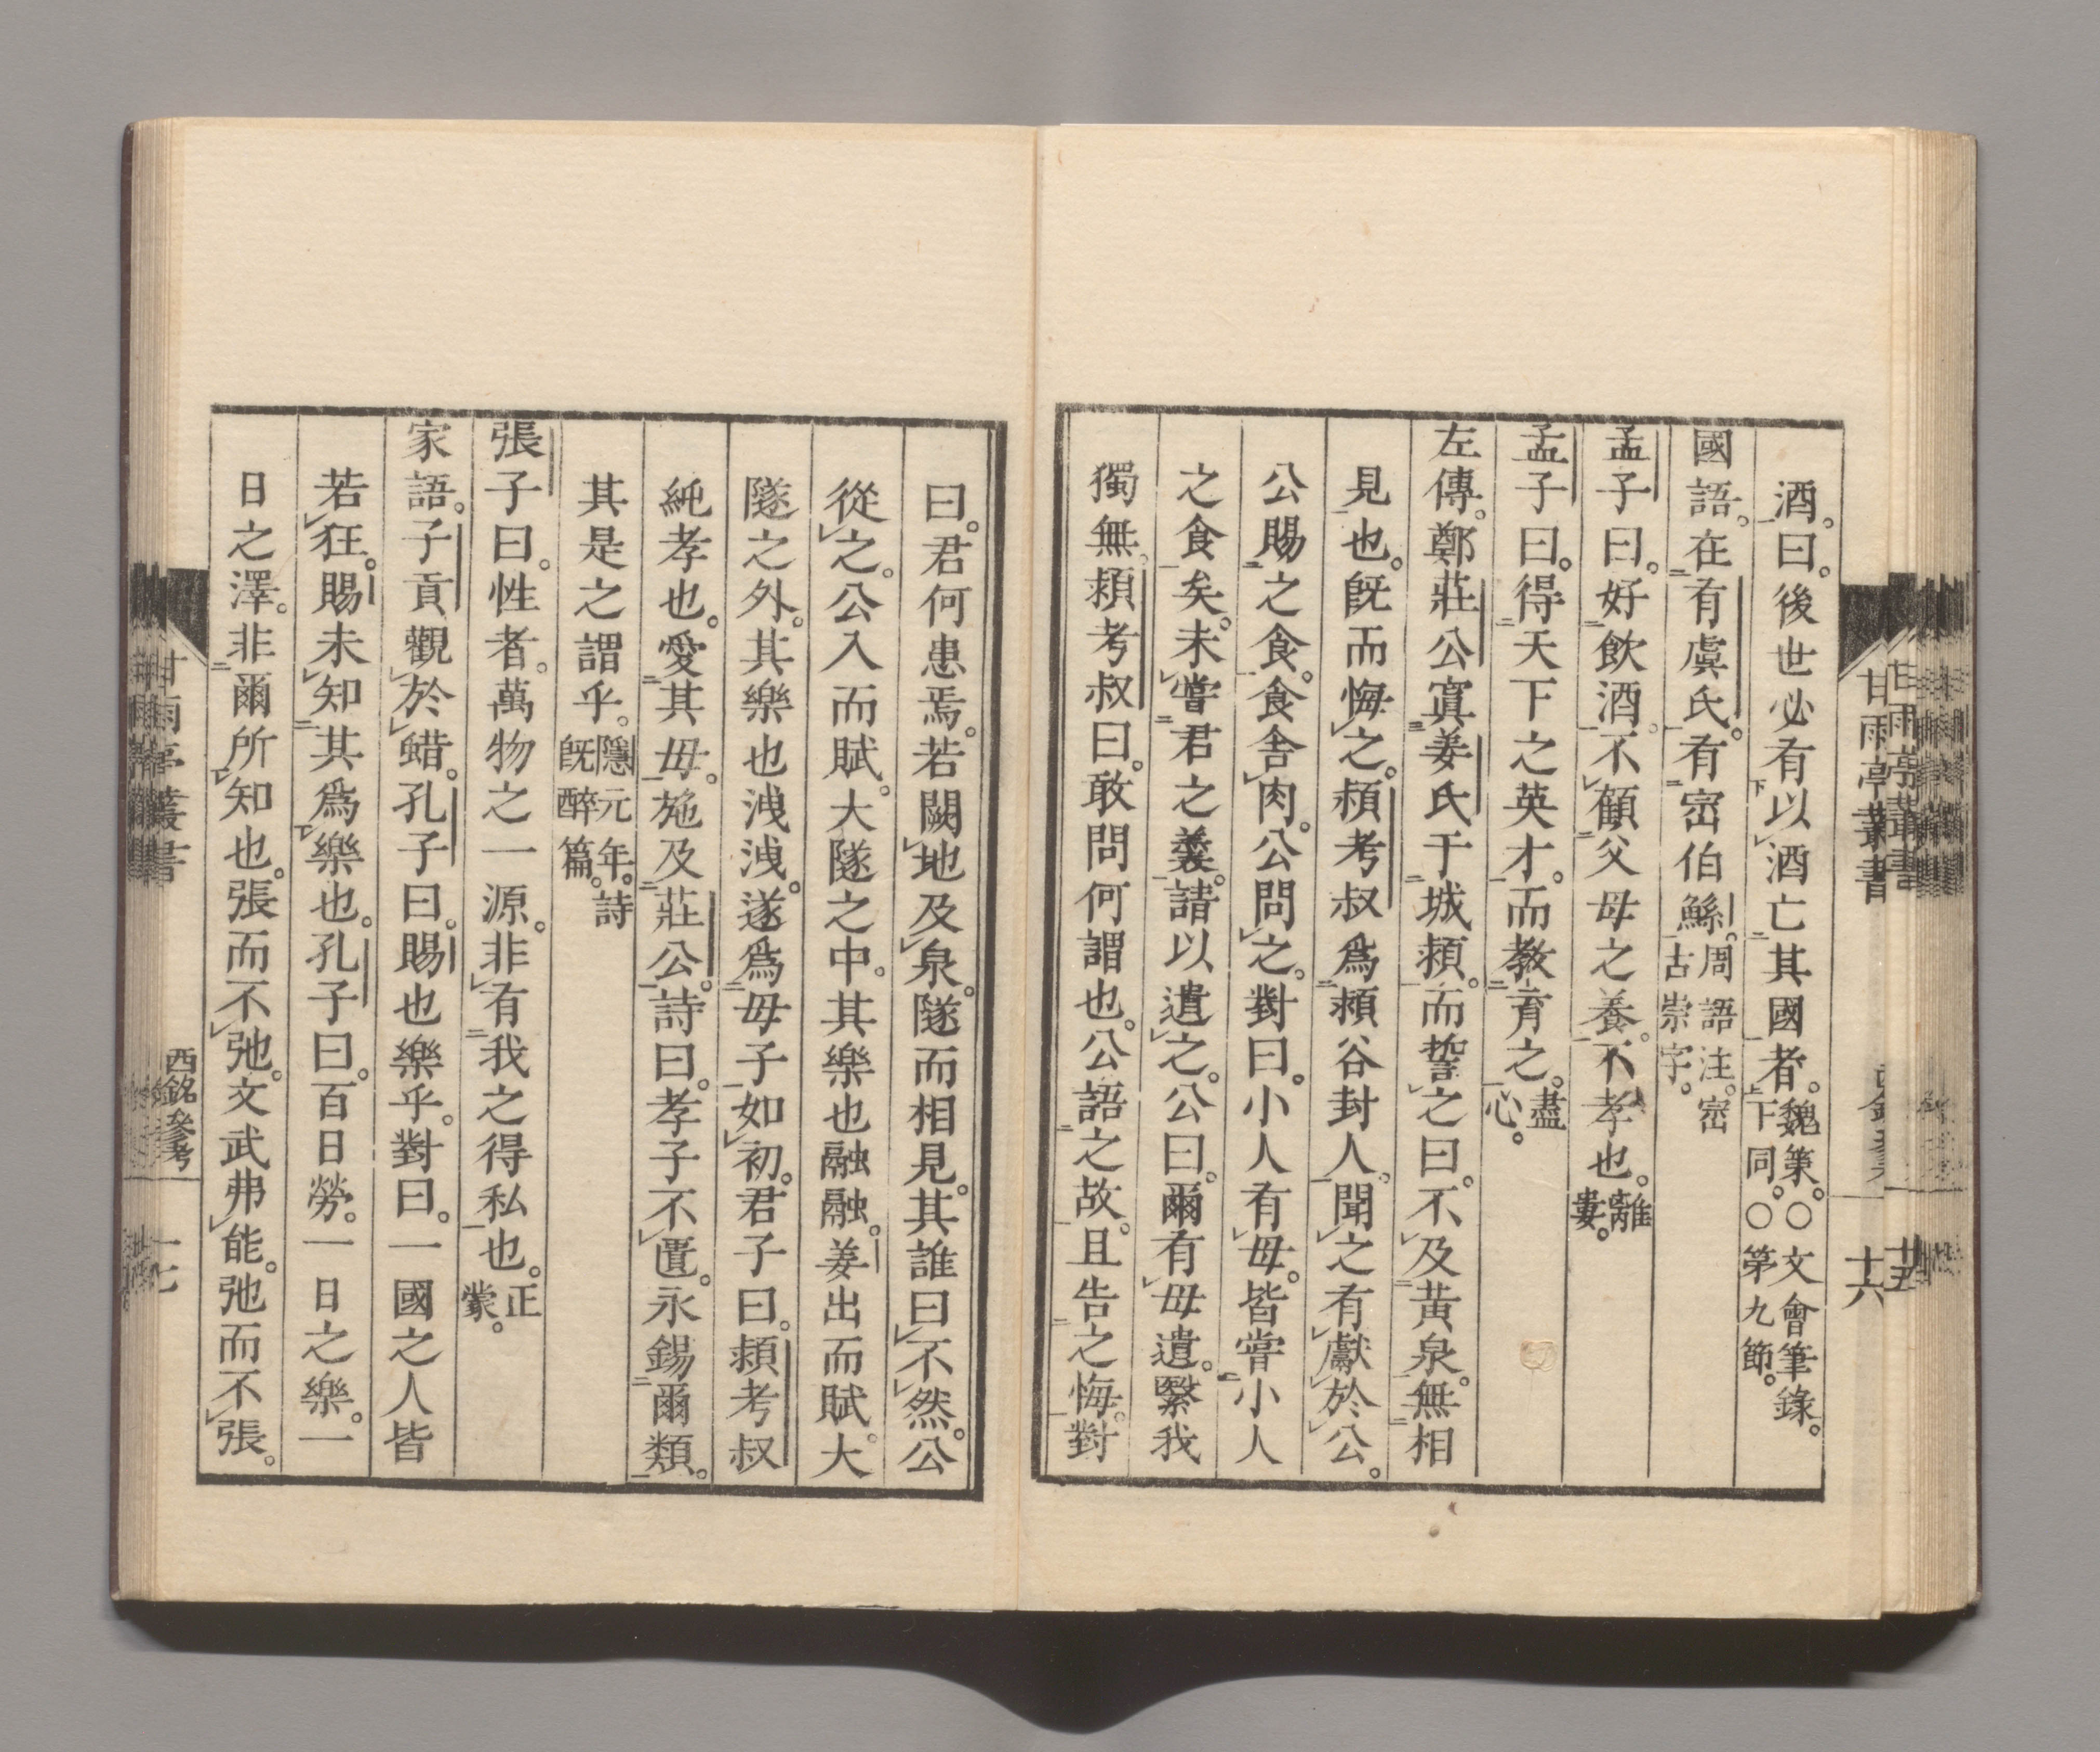 酒。曰。後世必有以酒亡其國者。魏策。○文會筆錄。下同。○第九節。
國語。在有虞氏。有崈伯鯀。周語注。崈古崇字。
孟子曰。好飲酒。不顧父母之養。不孝也。離婁。
孟子曰。得天下之英才。而教育之。盡心。
左傳。鄭莊公寘姜氏于城潁。而誓之曰。不及黃泉。無相
見也。既而悔之。潁考叔爲潁谷封人。聞之有獻於公。
公賜之食。食舍肉。公問之。對曰。小人有母。皆嘗小人
之食矣。未嘗君之羹。請以遺之。公曰。爾有母遺。繄我
獨無。潁考叔曰。敢問何謂也。公語之故。且告之悔。對
曰。君何患焉。若闕地及泉。隧而相見。其誰曰不然。公
從之。公入而賦。大隧之中。其樂也融融。姜出而賦。大
隧之外。其樂也洩洩。遂爲母子如初。君子曰。潁考叔
純孝也。愛其母。施及莊公。詩曰。孝子不匱。永錫爾類。
其是之謂乎。隱元年。詩既醉篇。
張子曰。性者。萬物之一源。非有我之得私也。正蒙。
家語。子貢觀於蜡。孔子曰。賜也樂乎。對曰。一國之人皆
若狂。賜未知其爲樂也。孔子曰。百日勞。一日之樂。一
日之澤。非爾所知也。張而不弛。文武弗能。弛而不張。
甘雨亭叢書
十六
甘雨亭叢書
西銘參考
十七